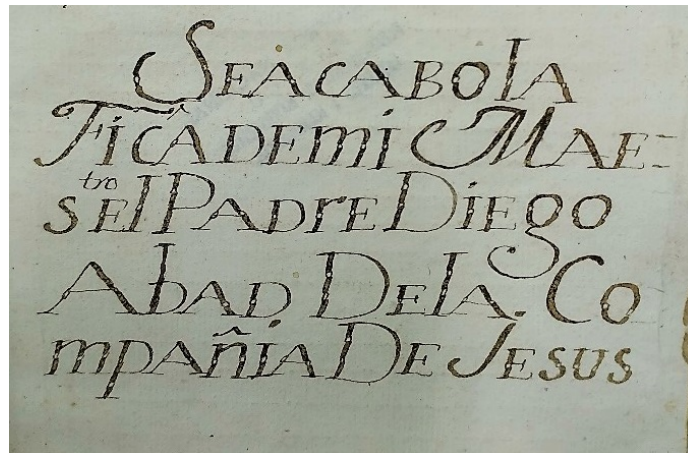 SEACABOlA
FicâDEmi MAE=
tro
sElPADrEDiEgo
AbAD DElA. Co
mpAñiA DE JESUS